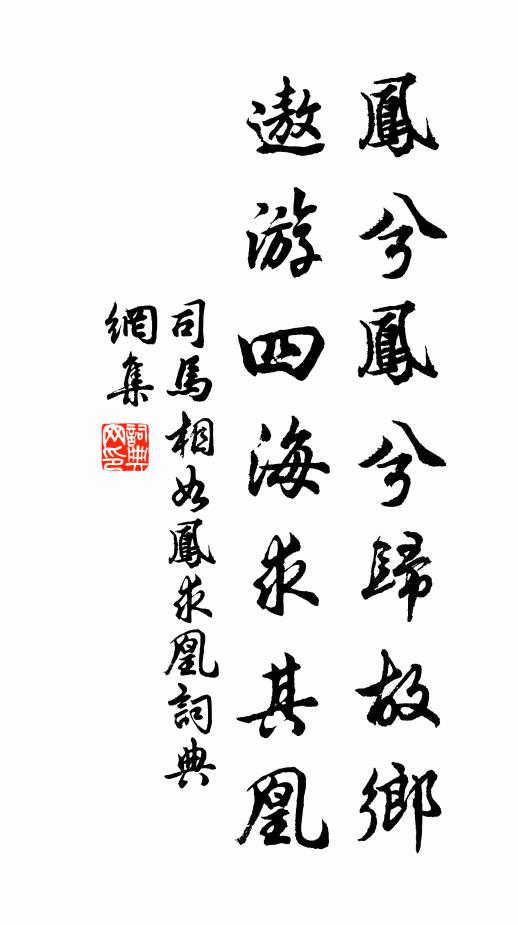 鳳兮鳳兮歸故鄉
遨游四海求其凰
司馬相如鳳求凰詞典
網集
詞典网印